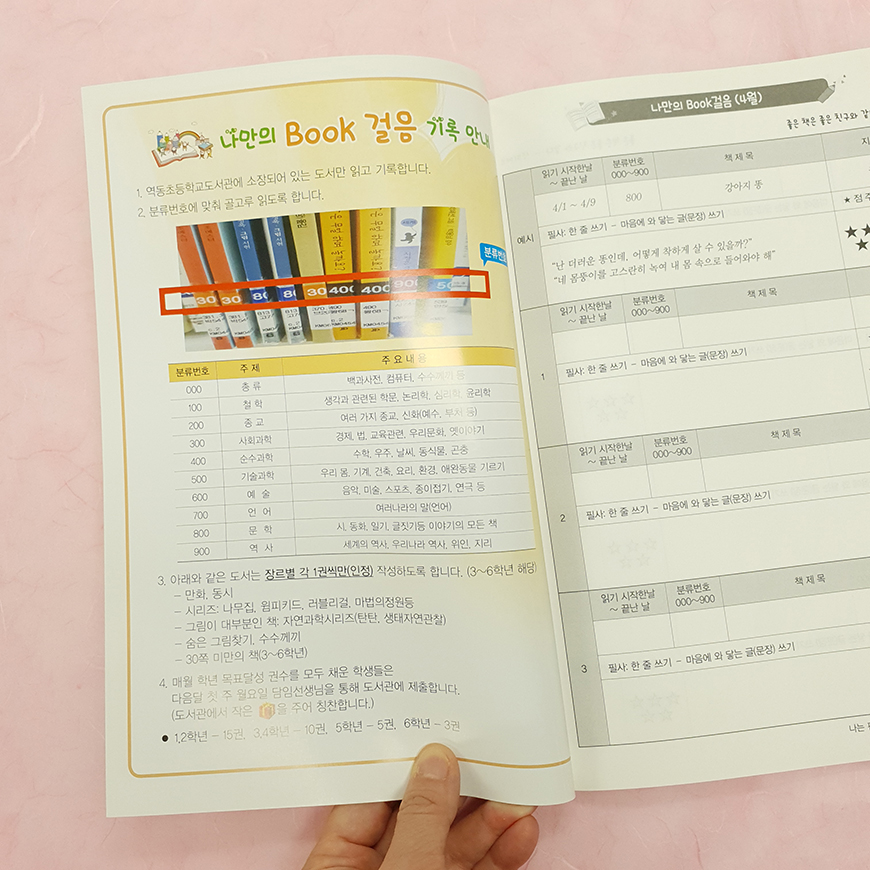 나만의 Book 걸음 기록 안내
1. 역동초등학교도서관에 소장되어 있는 도서만 읽고 기록합니다.
2. 분류번호에 맞춰 골고루 읽도록 합니다.
분류번호
분류번호 주 제 주 요 내 용
000 총 류 백과사전, 컴퓨터, 수수께끼 등
100 철 학 생각과 관련된 학문, 논리학, 심리학, 윤리학
200 종 교 여러 가지 종교, 신화(예수, 부처 등)
300 사회과학 경제, 법, 교육관련, 우리문화, 옛이야기
400 순수과학 수학, 우주, 날씨, 동식물, 곤충
500 기술과학 우리 몸, 기계, 건축, 요리, 환경, 애완동물 기르기
600 예 술 음악, 미술, 스포츠, 종이접기, 연극 등
700 언 어 여러나라의 말(언어)
800 문 학 시, 동화, 일기, 글짓기등 이야기의 모든 책
900 역 사 세계의 역사, 우리나라 역사, 위인, 지리
3. 아래와 같은 도서는 장르별 각 1권씩만(인정) 작성하도록 합니다. (3~6학년 해당)
- 만화, 동시
- 시리즈: 나무집, 윔피키드, 러블리걸, 마법의정원등
- 그림이 대부분인 책: 자연과학시리즈(탄탄, 생태자연관찰)
- 숨은 그림찾기, 수수께끼
- 30쪽 미만의 책(3~6학년)
4. 매월 학년 목표달성 권수를 모두 채운 학생들은
다음달 첫 주 월요일 담임선생님을 통해 도서관에 제출합니다.
(도서관에서 작은 을 주어 칭찬합니다.)
● 1,2학년 - 15권, 3,4학년 - 10권, 5학년 - 5권, 6학년 - 3권
나만의 Book걸음 (4월)
좋은 책은 좋은 친구와 같
읽기 시작한날 ~ 끝난 날 분류번호 000~900 책 제 목 지
예시 4/1 ~ 4/9 800 강아지 똥 ★ 점 주
필사: 한 줄 쓰기 - 마음에 와 닿는 글(문장) 쓰기
"난 더러운 똥인데, 어떻게 착하게 살 수 있을까?"
"네 몸뚱이를 고스란히 녹여 내 몸 속으로 들어와야 해"
읽기 시작한날 ~ 끝난 날 분류번호 000~900 책 제 목
1 필사: 한 줄 쓰기 - 마음에 와 닿는 글(문장) 쓰기
읽기 시작한날 ~ 끝난 날 분류번호 000~900 책 제 목
2 필사: 한 줄 쓰기 - 마음에 와 닿는 글(문장) 쓰기
읽기 시작한날 ~ 끝난 날 분류번호 000~900 책 제 목
3 필사: 한 줄 쓰기 - 마음에 와 닿는 글(문장) 쓰기
나는